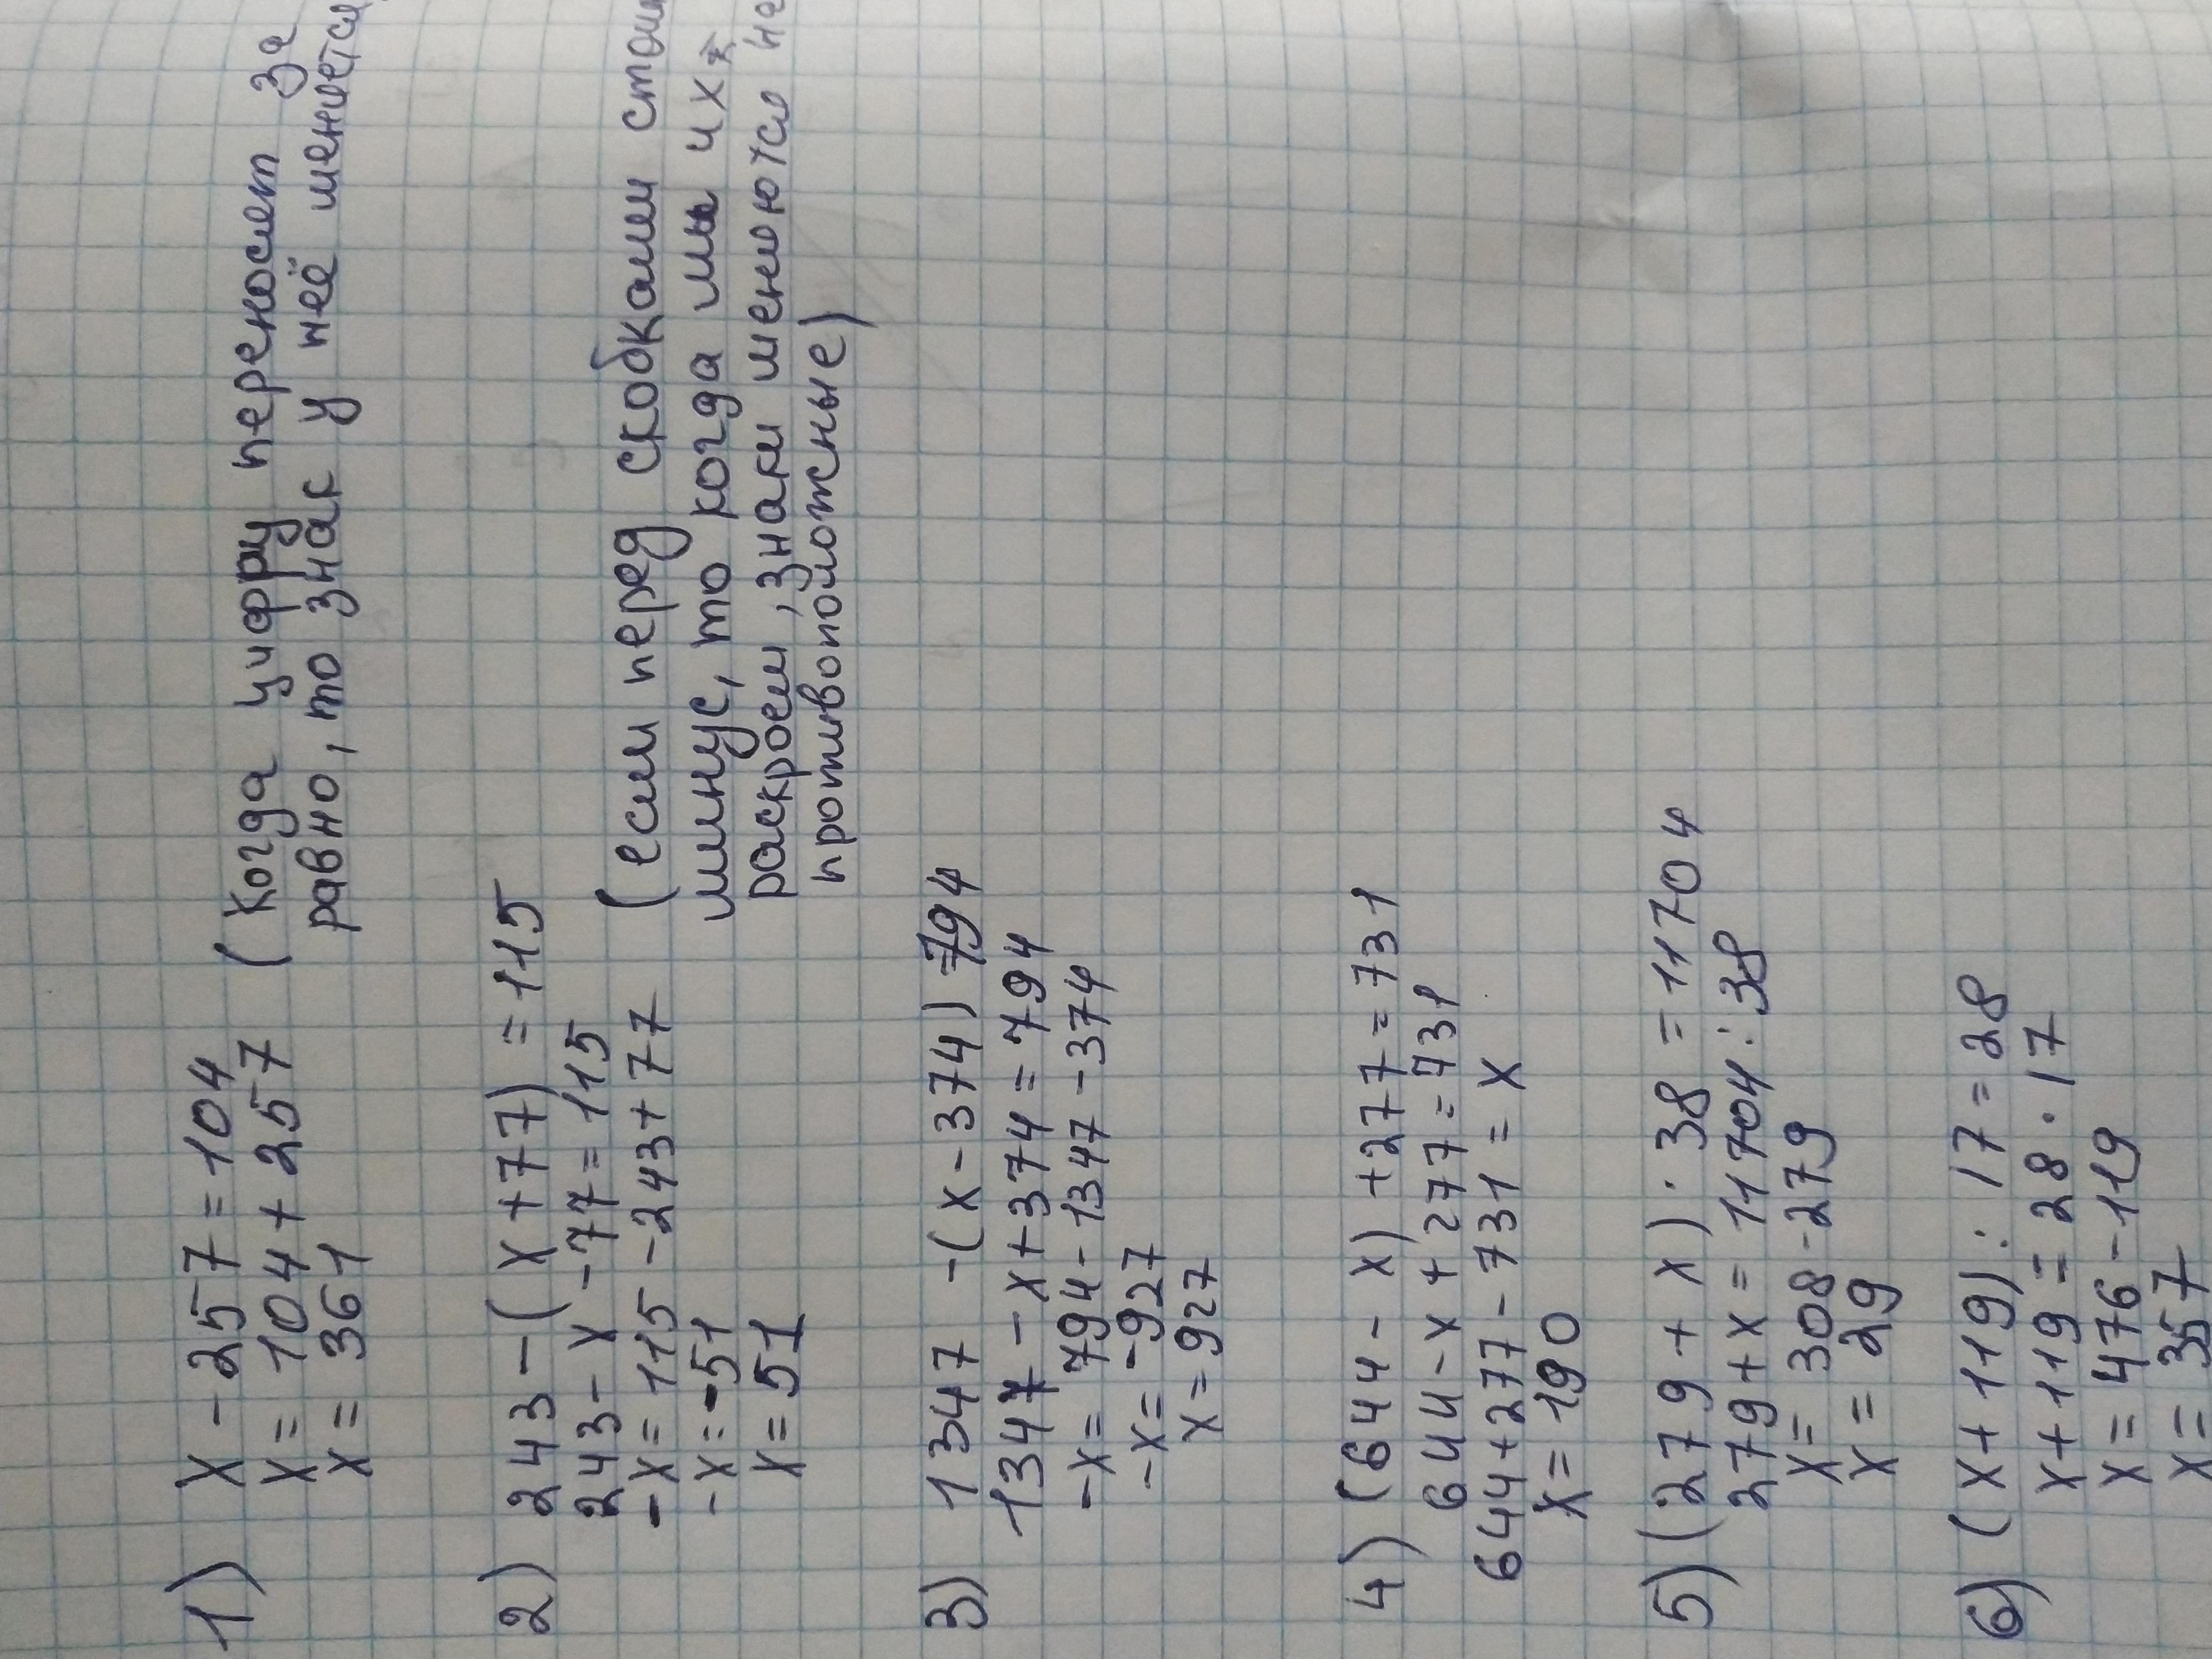 1) x - 257 = 104 (Когда цифру переносят за
x = 104 + 257 равно, то знак у неё меняется
x = 361
2) 243 - (x + 77) = 115
243 - x - 77 = 115
-x = 115 - 243 + 77 (если перед скобками стои
-x = -51 минус, то когда мы их
x = 51 раскроем, знаки меняются на
противоположные)
3) 1347 - (x - 374) = 794
1347 - x + 374 = 794
-x = 794 - 1347 - 374
-x = -927
x = 927
4) (644 - x) + 277 = 731
644 - x + 277 = 731
644 + 277 - 731 = x
x = 190
5) (279 + x) · 38 = 11704
279 + x = 11704 : 38
x = 308 - 279
x = 29
6) (x + 119) : 17 = 28
x + 119 = 28 · 17
x = 476 - 119
x = 357